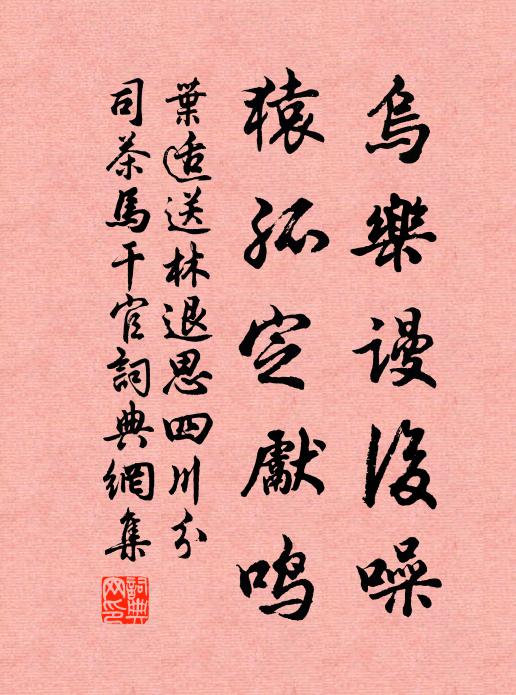 烏樂謾後噪
猿孤定獻鳴
葉适送林退思四川分
司茶馬干官詞典網集
詞典
网印